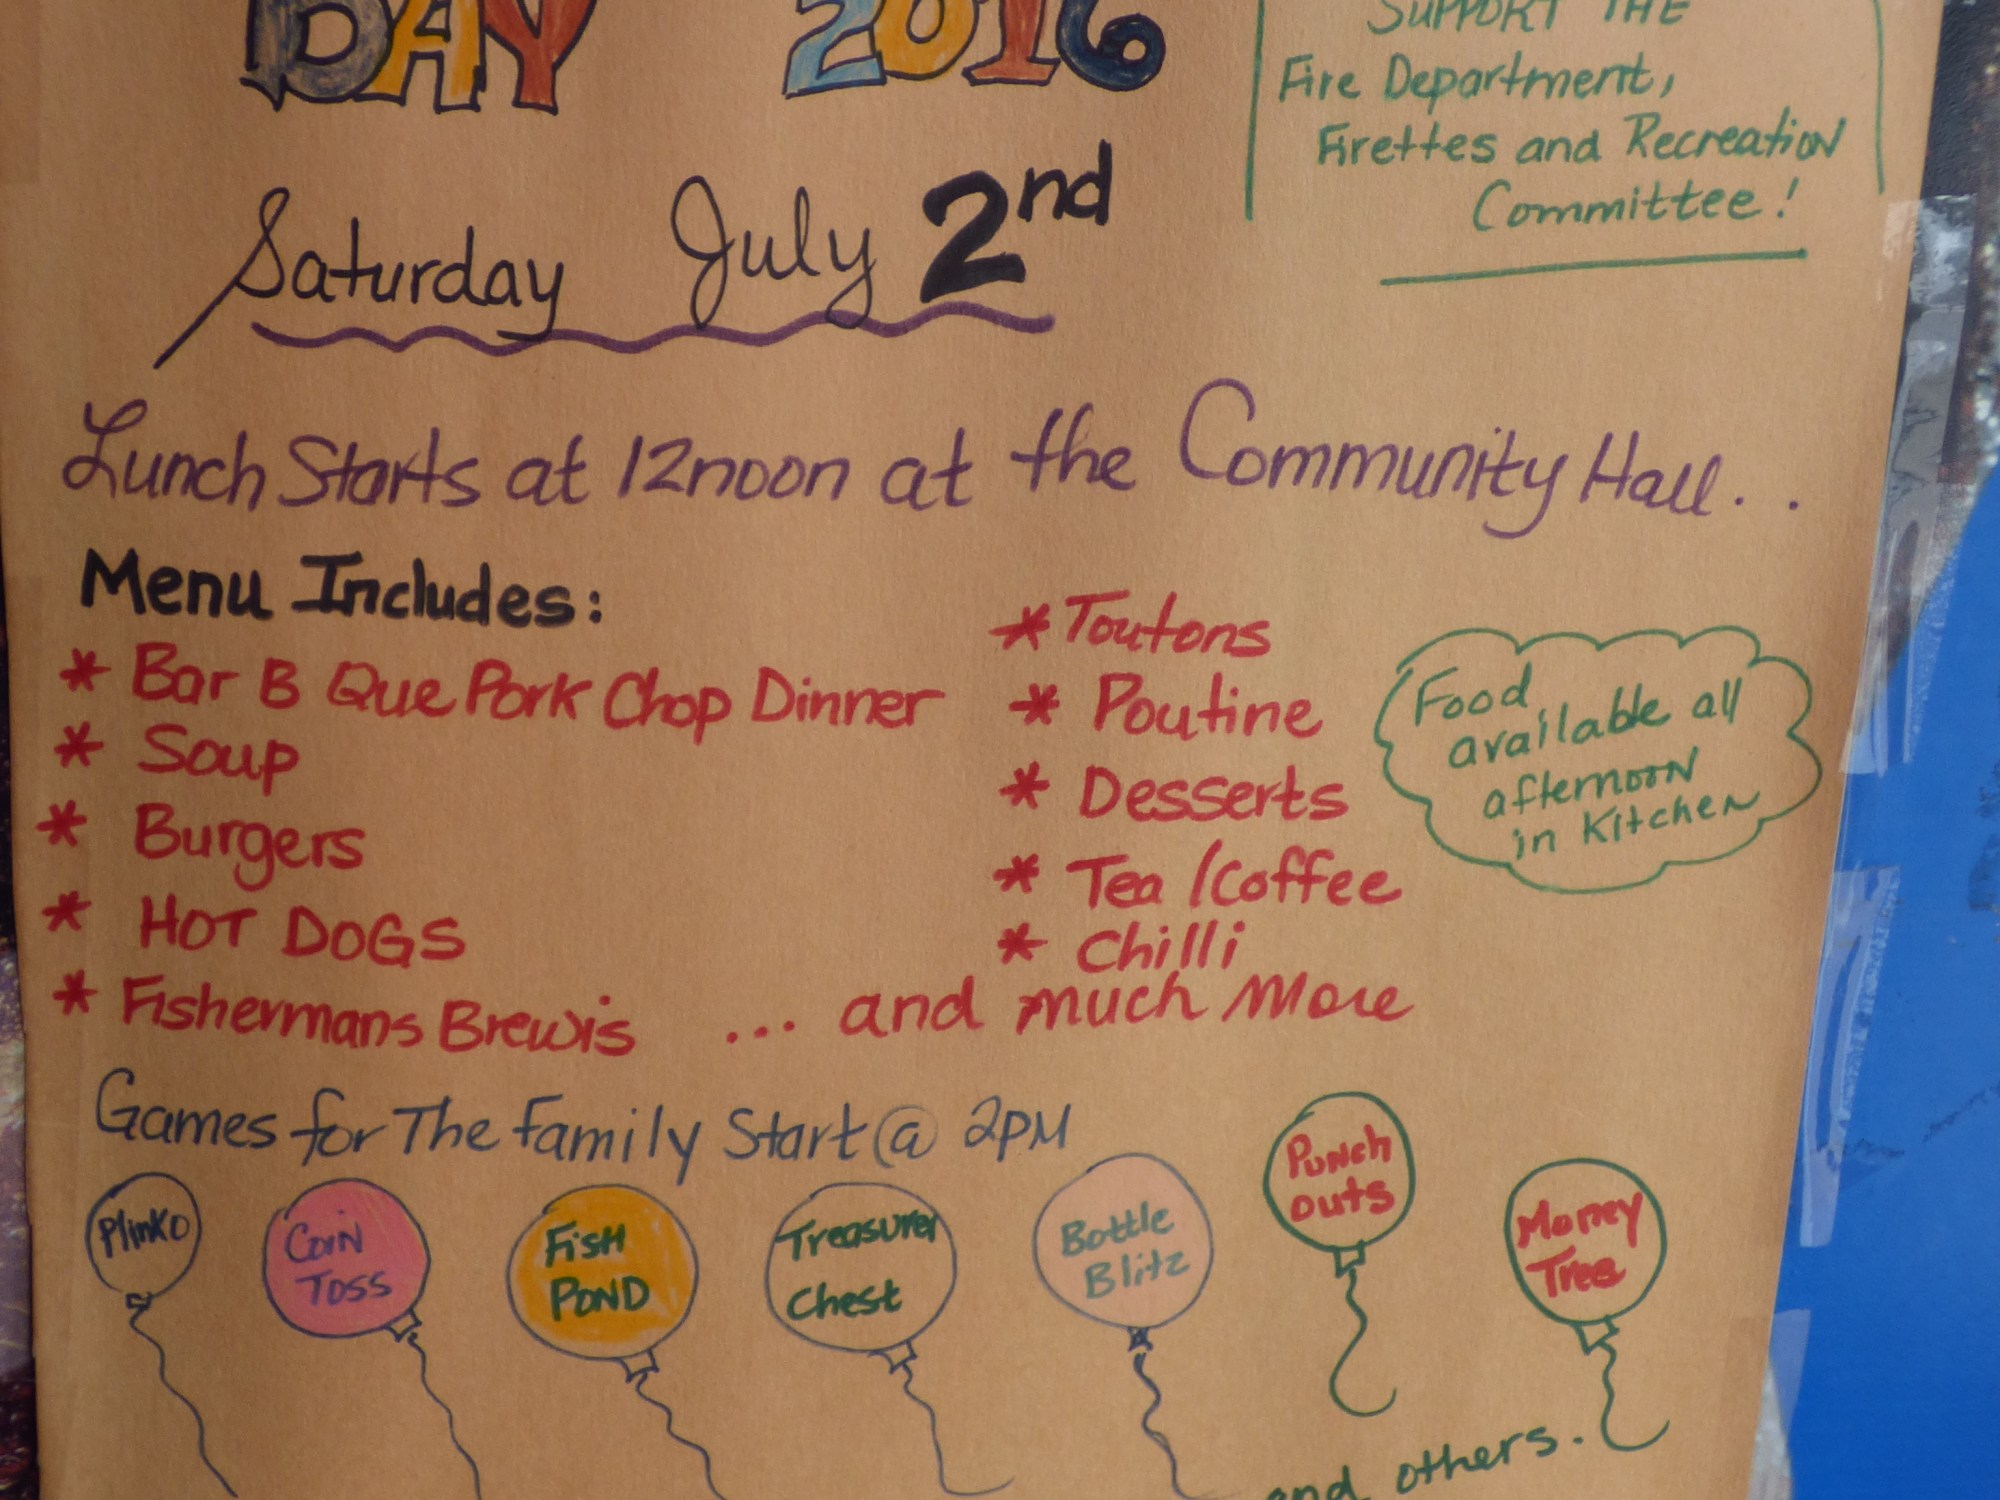 DAY 2016
SUPPORT THE
Fire Department,
Firettes and Recreation
Committee!
Saturday July 2nd
Lunch Starts at 12noon at the Community Hall..
Menu Includes:
* Bar B Que Pork Chop Dinner
* Soup
* Burgers
* HOT DOGS
* Fishermans Brewis
* Toutons
* Poutine
* Desserts
* Tea / Coffee
* Chilli
... and much More
Food
available all
afternoon
in Kitchen
Games for The Family Start @ 2PM
Plinko
Coin
Toss
Fish
Pond
Treasurer
Chest
Bottle
Blitz
Punch
outs
Money
Tree
and others.